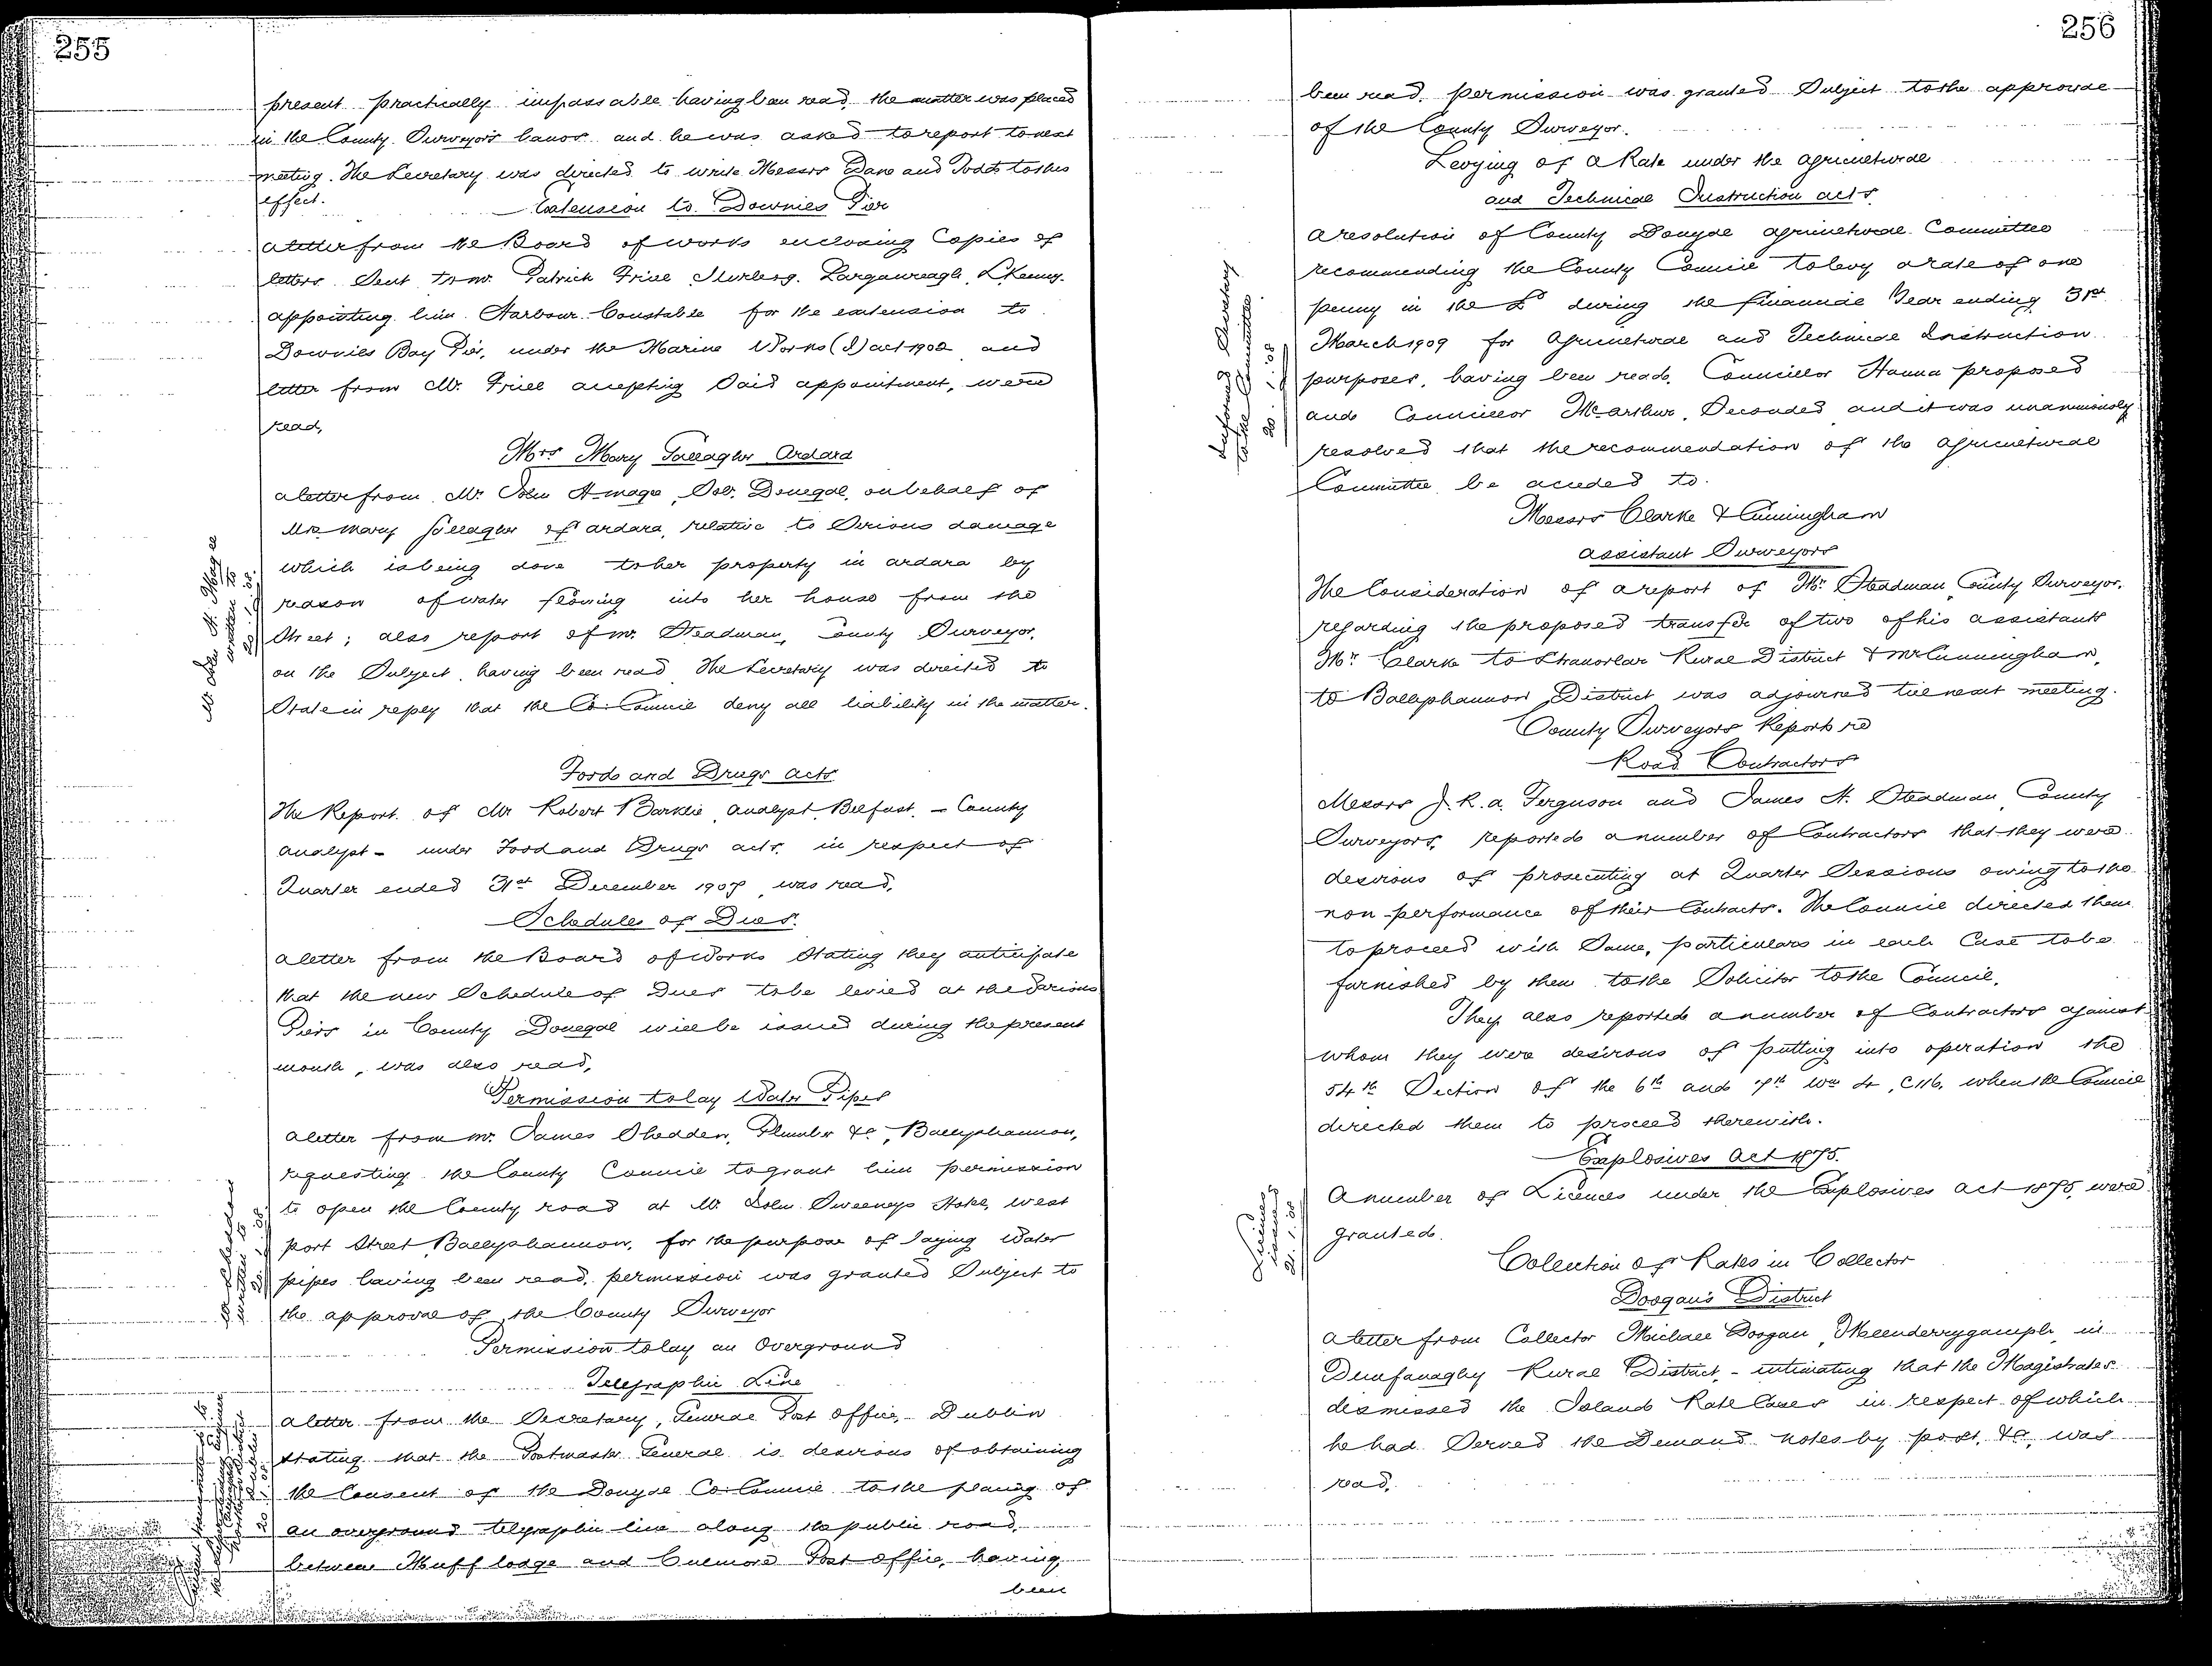 255
present practically impassable having been read, the matter was placed
in the County Surveyor's hands and he was asked to report to next
meeting. The Secretary was directed to write Messrs Dane and Todd to this
effect.
Extension to Downies Pier
A letter from the Board of Works enclosing Copies of
letters Sent to Mr. Patrick Friel Largawreagh, L'Kenny.
appointing him Harbour Constable for the extension to
Downies Bay Pier, under the Marine Works (I) act 1902 and
letter from Mr. Friel accepting Said appointment, were
read,
Mrs Mary Gallagher Ardara
A letter from Mr John A. Magee, Solr. Donegal, on behalf of
Mrs Mary Gallagher of ardara, relative to Serious damage
which is being done to her property in ardara by
reason of water flowing into her house from the
Street; also report of Mr. Steadman, County Surveyor,
on the Subject, having been read The Secretary was directed to
State in reply that the Co: Council deny all liability in the matter.
Mr. John A. Magee
written to
20/1/08.
Foods and Drugs acts
The Report of Mr Robert Barklie, analyst, Belfast, - County
analyst - under Food and Drugs acts, in respect of
Quarter ended 31st December 1907, was read,
Schedules of Dues.
A letter from the Board of Works Stating they anticipate
that the new Schedule of Dues to be levied at the Various
Piers in County Donegal will be issued during the present
month, was also read,
Permission to lay Water Pipes
A letter from Mr. James Shedden, Plumber &c, Ballyshannon,
requesting the County Council to grant him permission
to open the County road at Mr. John Sweeneys Hotel, west
port Street Ballyshannon, for the purpose of laying Water
pipes having been read, permission was granted Subject to
the approval of the County Surveyor
Shedden
written to
20/1/08
Permission to lay an Overground
Telegraphic Line
A letter from the Secretary, General Post office, Dublin
stating that the Postmaster General is desirous of obtaining
the Consent of the Donegal Co: Council to the placing of
an overground telegraphic line along the public road
between Muff lodge and Culmore Post office, having
been
256
been read, permission was granted Subject to the approval
of the County Surveyor.
Levying of a Rate under the Agricultural
and Technical Instruction acts.
A resolution of County Donegal Agricultural Committee
recommending the County Council to levy a rate of one
penny in the £ during the financial Year ending 31st
March 1909 for Agricultural and Technical Instruction
purposes, having been read, Councillor Hanna proposed
and Councillor McArthur, Seconded and it was unanimously
resolved that the recommendation of the Agricultural
Committee be acceded to.
Informed Secretary
to the Committee.
20/1/08
Messrs Clarke & Cunningham
assistant Surveyors
The Consideration of a report of Mr. Steadman County Surveyor,
regarding the proposed transfer of two of his assistants
Mr. Clarke to Stranorlar Rural District & Mr Cunningham,
to Ballyshannon District was adjourned till next meeting.
County Surveyors Reports re
Road Contractors
Messrs J. R. A. Ferguson and James H. Steadman County
Surveyors, reported a number of Contractors that they were
desirous of prosecuting at Quarter Sessions owing to the
non-performance of their Contracts. The Council directed them
to proceed with Same, particulars in each Case to be
furnished by them to the Solicitor to the Council.
They also reported a number of Contractors against
whom they were desirous of putting into operation the
54th Section of the 6th and 7th Wm 4, C116, when the Council
directed them to proceed therewith.
Explosives Act 1875.
A number of Licences under the Explosives act 1875, were
granted.
Licences
issued
21.1.08
Colection of Rates in Collector
Doogan's District
A letter from Collector Michael Doogan, Meenderrygamph, in
Dunfanaghy Rural District, - intimating that the Magistrates
dismissed the Islands Rate Cases in respect of which
he had Served the Demand notes by post, &c, was
read,